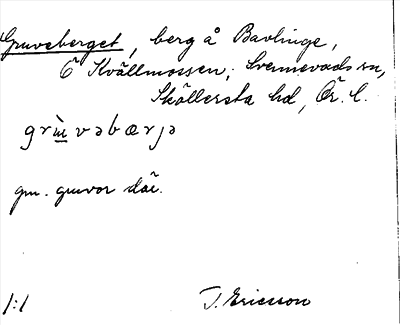 Gruveberget, berg å Bavlinge,
Ö Kvällmossen, Svennevads sn,
Sköllersta hd, Ör. l.
grɯ̀vəbærjə
gm. gruvor där.
1:1 T. Ericsson